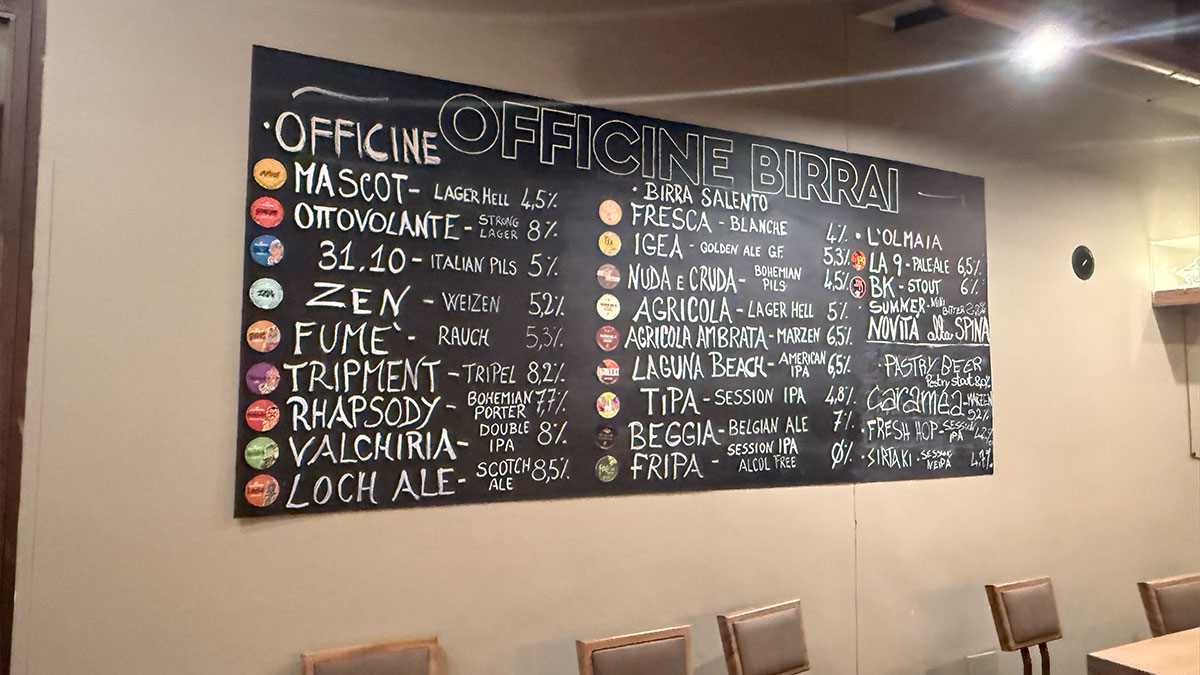 OFFICINE BIRRAI
• OFFICINE
MASCOT - LAGER HELL 4,5%
OTTOVOLANTE - STRONG LAGER 8%
31.10 - ITALIAN PILS 5%
ZEN - WEIZEN 5,2%
FUME` - RAUCH 5,3%
TRIPMENT - TRIPEL 8,2%
RHAPSODY - BOHEMIAN PORTER 7,7%
VALCHIRIA - DOUBLE IPA 8%
LOCH ALE - SCOTCH ALE 8,5%
• BIRRA SALENTO
FRESCA - BLANCHE 4%
IGEA - GOLDEN ALE G.F. 5,3%
NUDA E CRUDA - BOHEMIAN PILS 4,5%
AGRICOLA - LAGER HELL 5%
AGRICOLA AMBRATA - MARZEN 6,5%
LAGUNA BEACH - AMERICAN IPA 6,5%
TIPA - SESSION IPA 4,8%
BEGGIA - BELGIAN ALE 7%
FRIPA - SESSION IPA ALCOL FREE 0%
• L'OLMAIA
LA 9 - PALE ALE 6,5%
BK - STOUT 6%
SUMMER - MINI BITTER
NOVITÁ alla SPINA
• PASTRY BEER
Pastry stout
Caraméa - MARZEN 5,2%
• FRESH HOP - SESSION IPA
• SIRTAKI - SESSION NEIPA